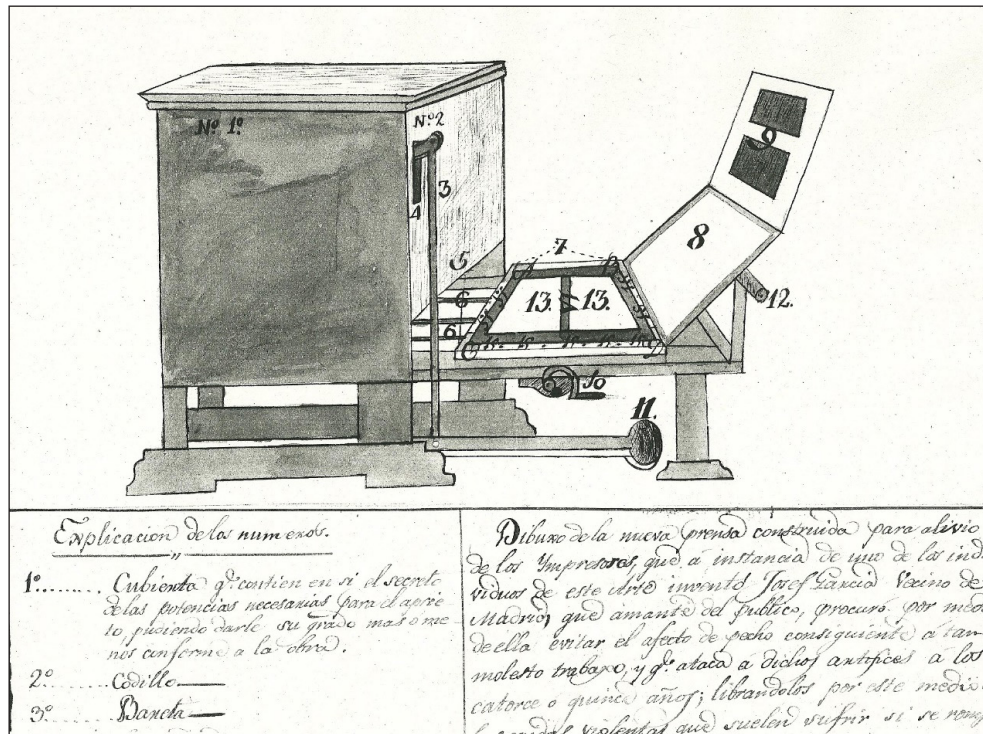 Nº 1º
Nº 2
3
4
5
6
6
7
8
9
10
11.
12.
13. 13.
Explicacion de los numeros.
1º........ Cubierta qe. contien en si el secreto
de las potencias necesarias para el aprie
to, pudiendo darle su grado mas o me
nos conforme a la obra.
2º ........ Codillo
3º ........ Bancta
Dibuxo de la nueva prensa construida para alivio
de los Ympresores, que á instancia de uno de los indi
viduos de este Arte inventó Josef Garcia Vecino de
Madrid, que amante del publico, procuró por medi
de ella evitar el afecto de pecho consiguiente á tan
molesto trabaxo, y qe. ataca á dichos artifices á los
catorce o quince años; librandolos por este medio
violentas que suelen sufrir si se romp